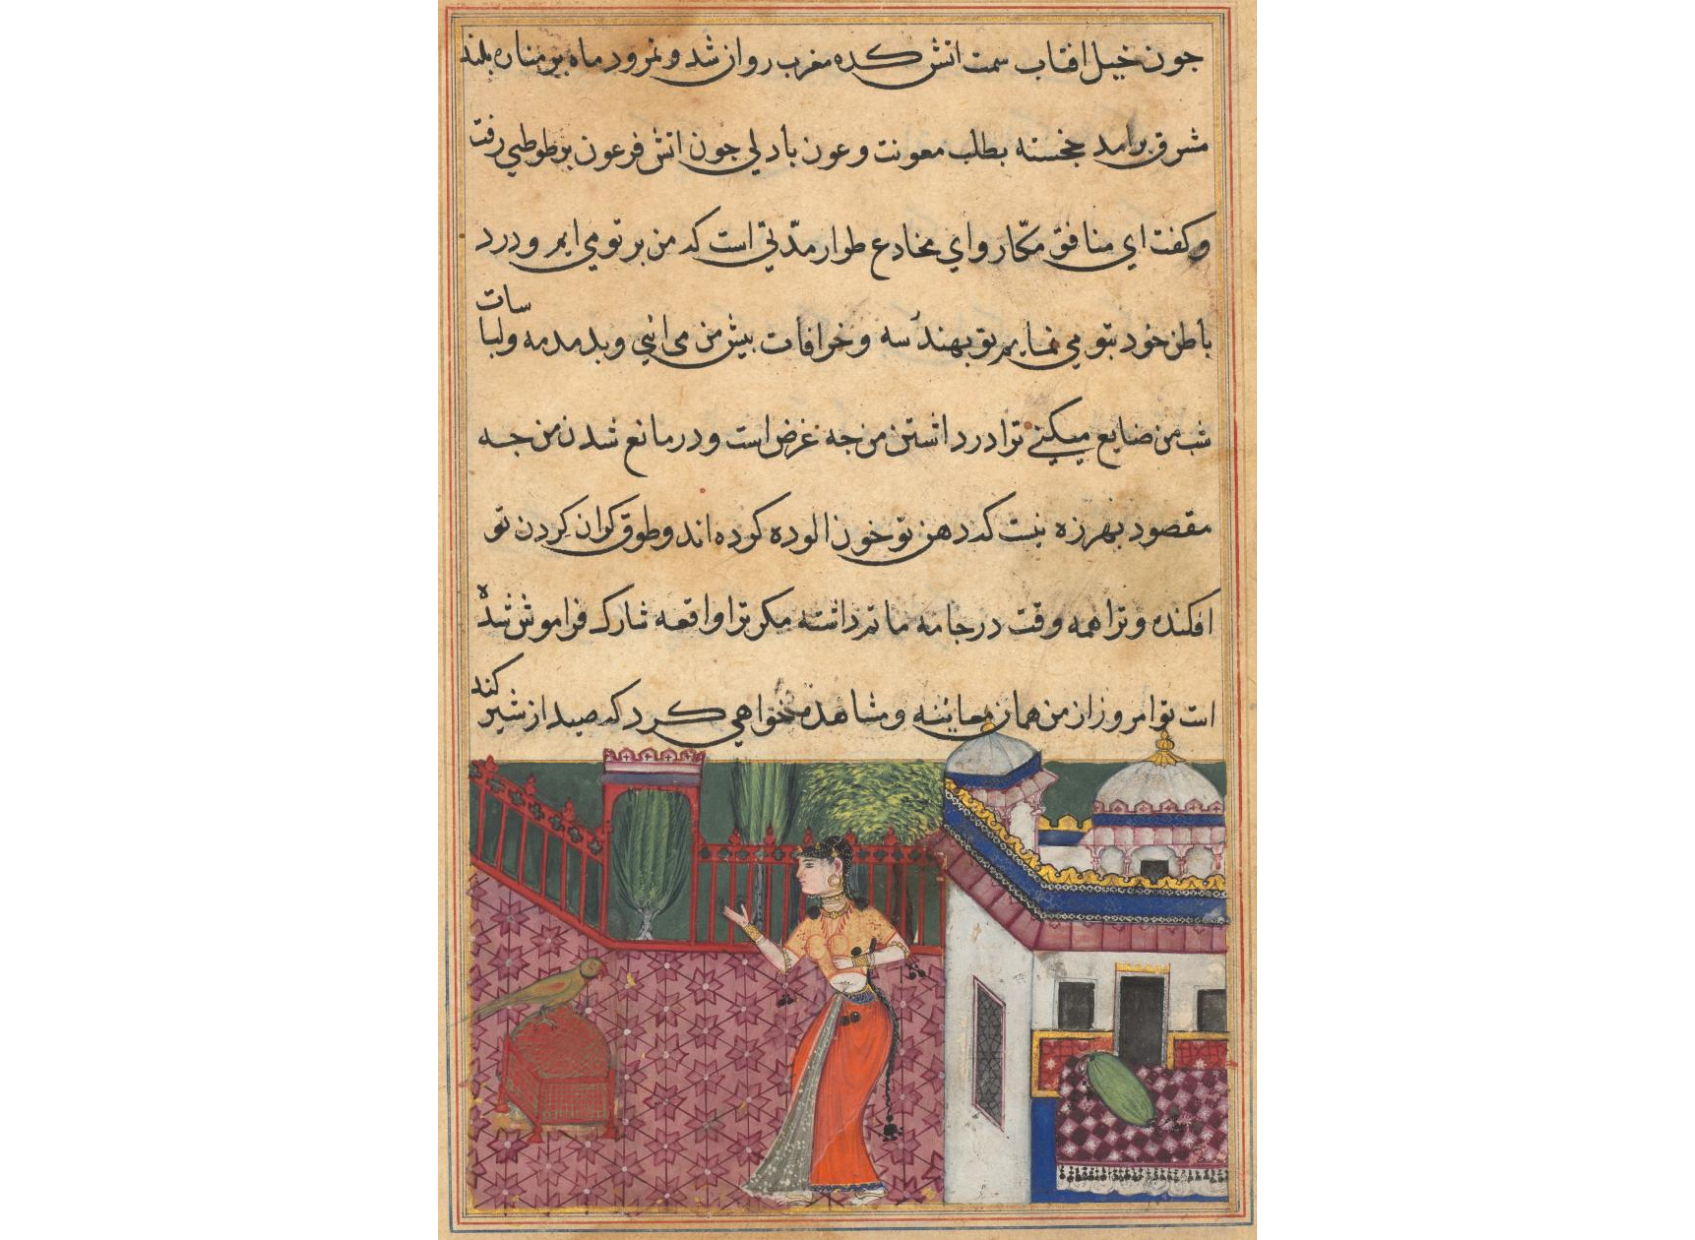 جون خیل افتاب سمت اتش کده مغرب روان شد و نمرود ماه بر مناره بلند
مشرق برامد خجسته بطلب معونت و عون بادلی جون اتش فرعون بر طوطی رفت
و کفت ای منافق مکّار و ای مخادع طوار مدّتی است که من بر تو می ایم و درد
باطن خود بتو می نمایم تو بهندسه و خرافات بیش من می انی و بدمدمه و لباسات
شب من ضایع میکنی ترا در داشتن من جه غرض است و در مانع شدن من جه
مقصود بهرزه نیست که دهن تو خون الوده کرده اند و طوق کران کردن تو
افکنده و ترا همه وقت در جامه ماتم داشته مکر ترا واقعه شارک فراموش شده
است تو امروز از من همان معاینه و مشاهده خواهی کرد که صید از شیر کند